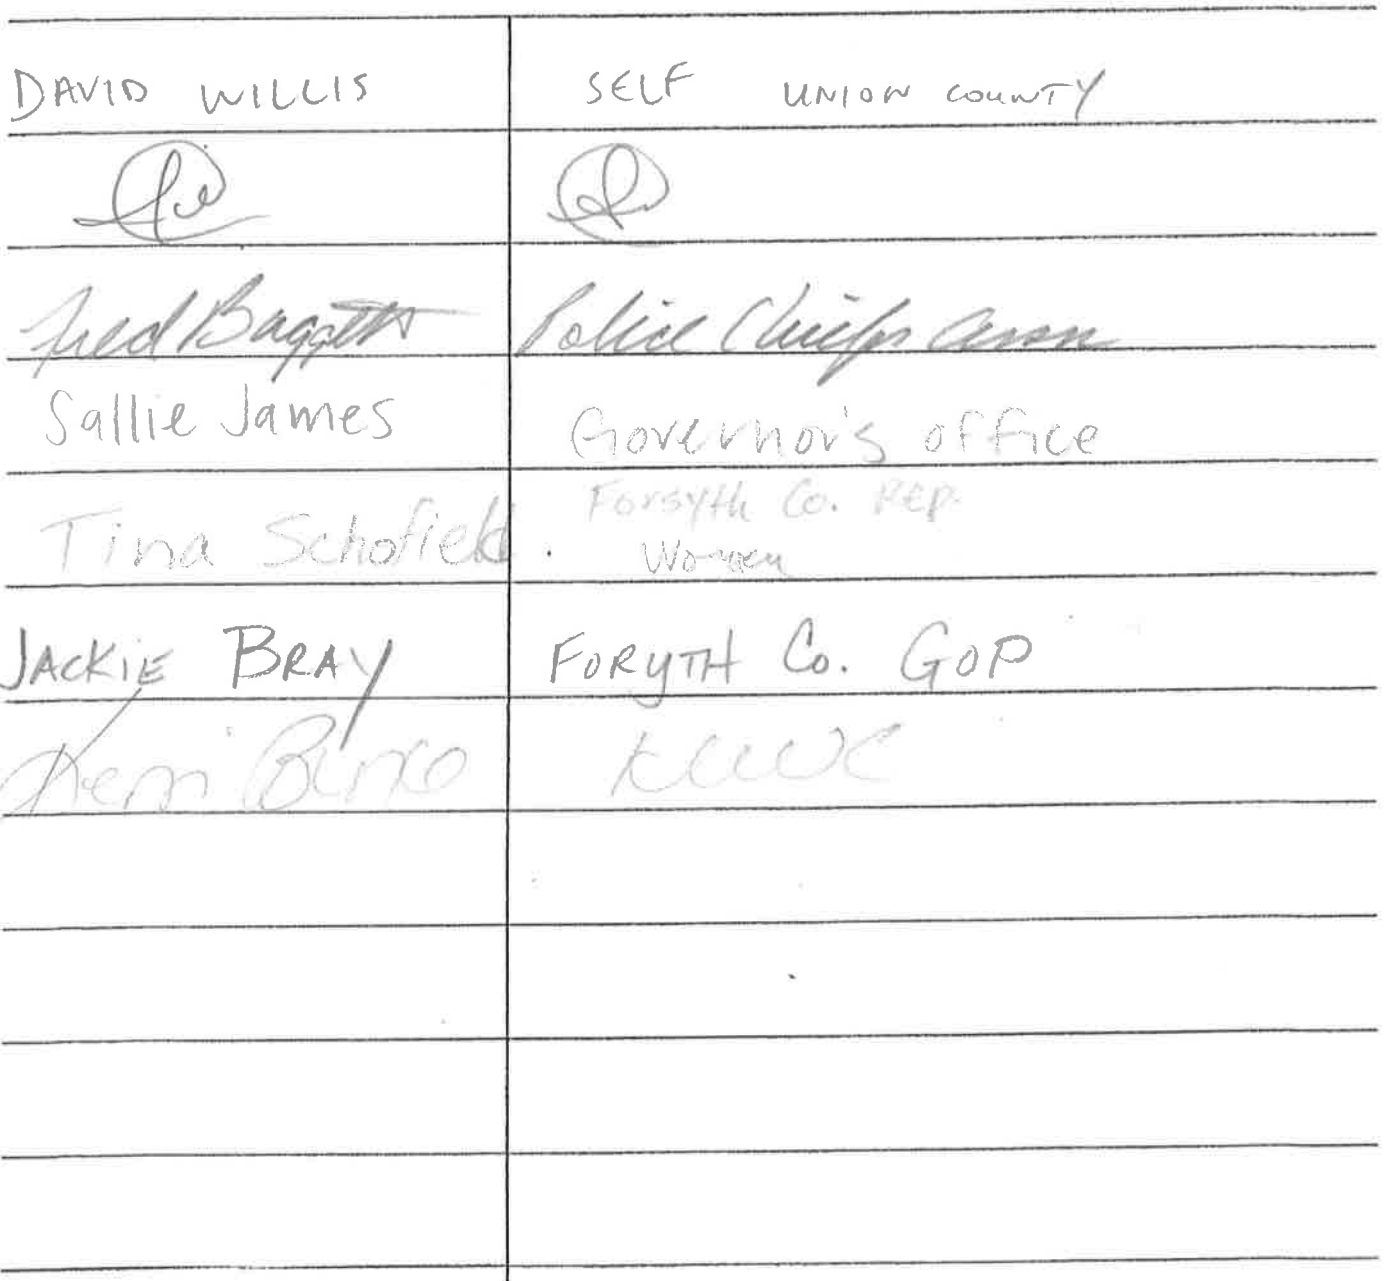 DAVID WILLIS SELF UNION COUNTY
Fred Baggett Police Chiefs Assn
Sallie James Governor's office
Tina Schofield. Forsyth Co. REP.
Women
JACKIE BRAY FORYTH Co. GOP